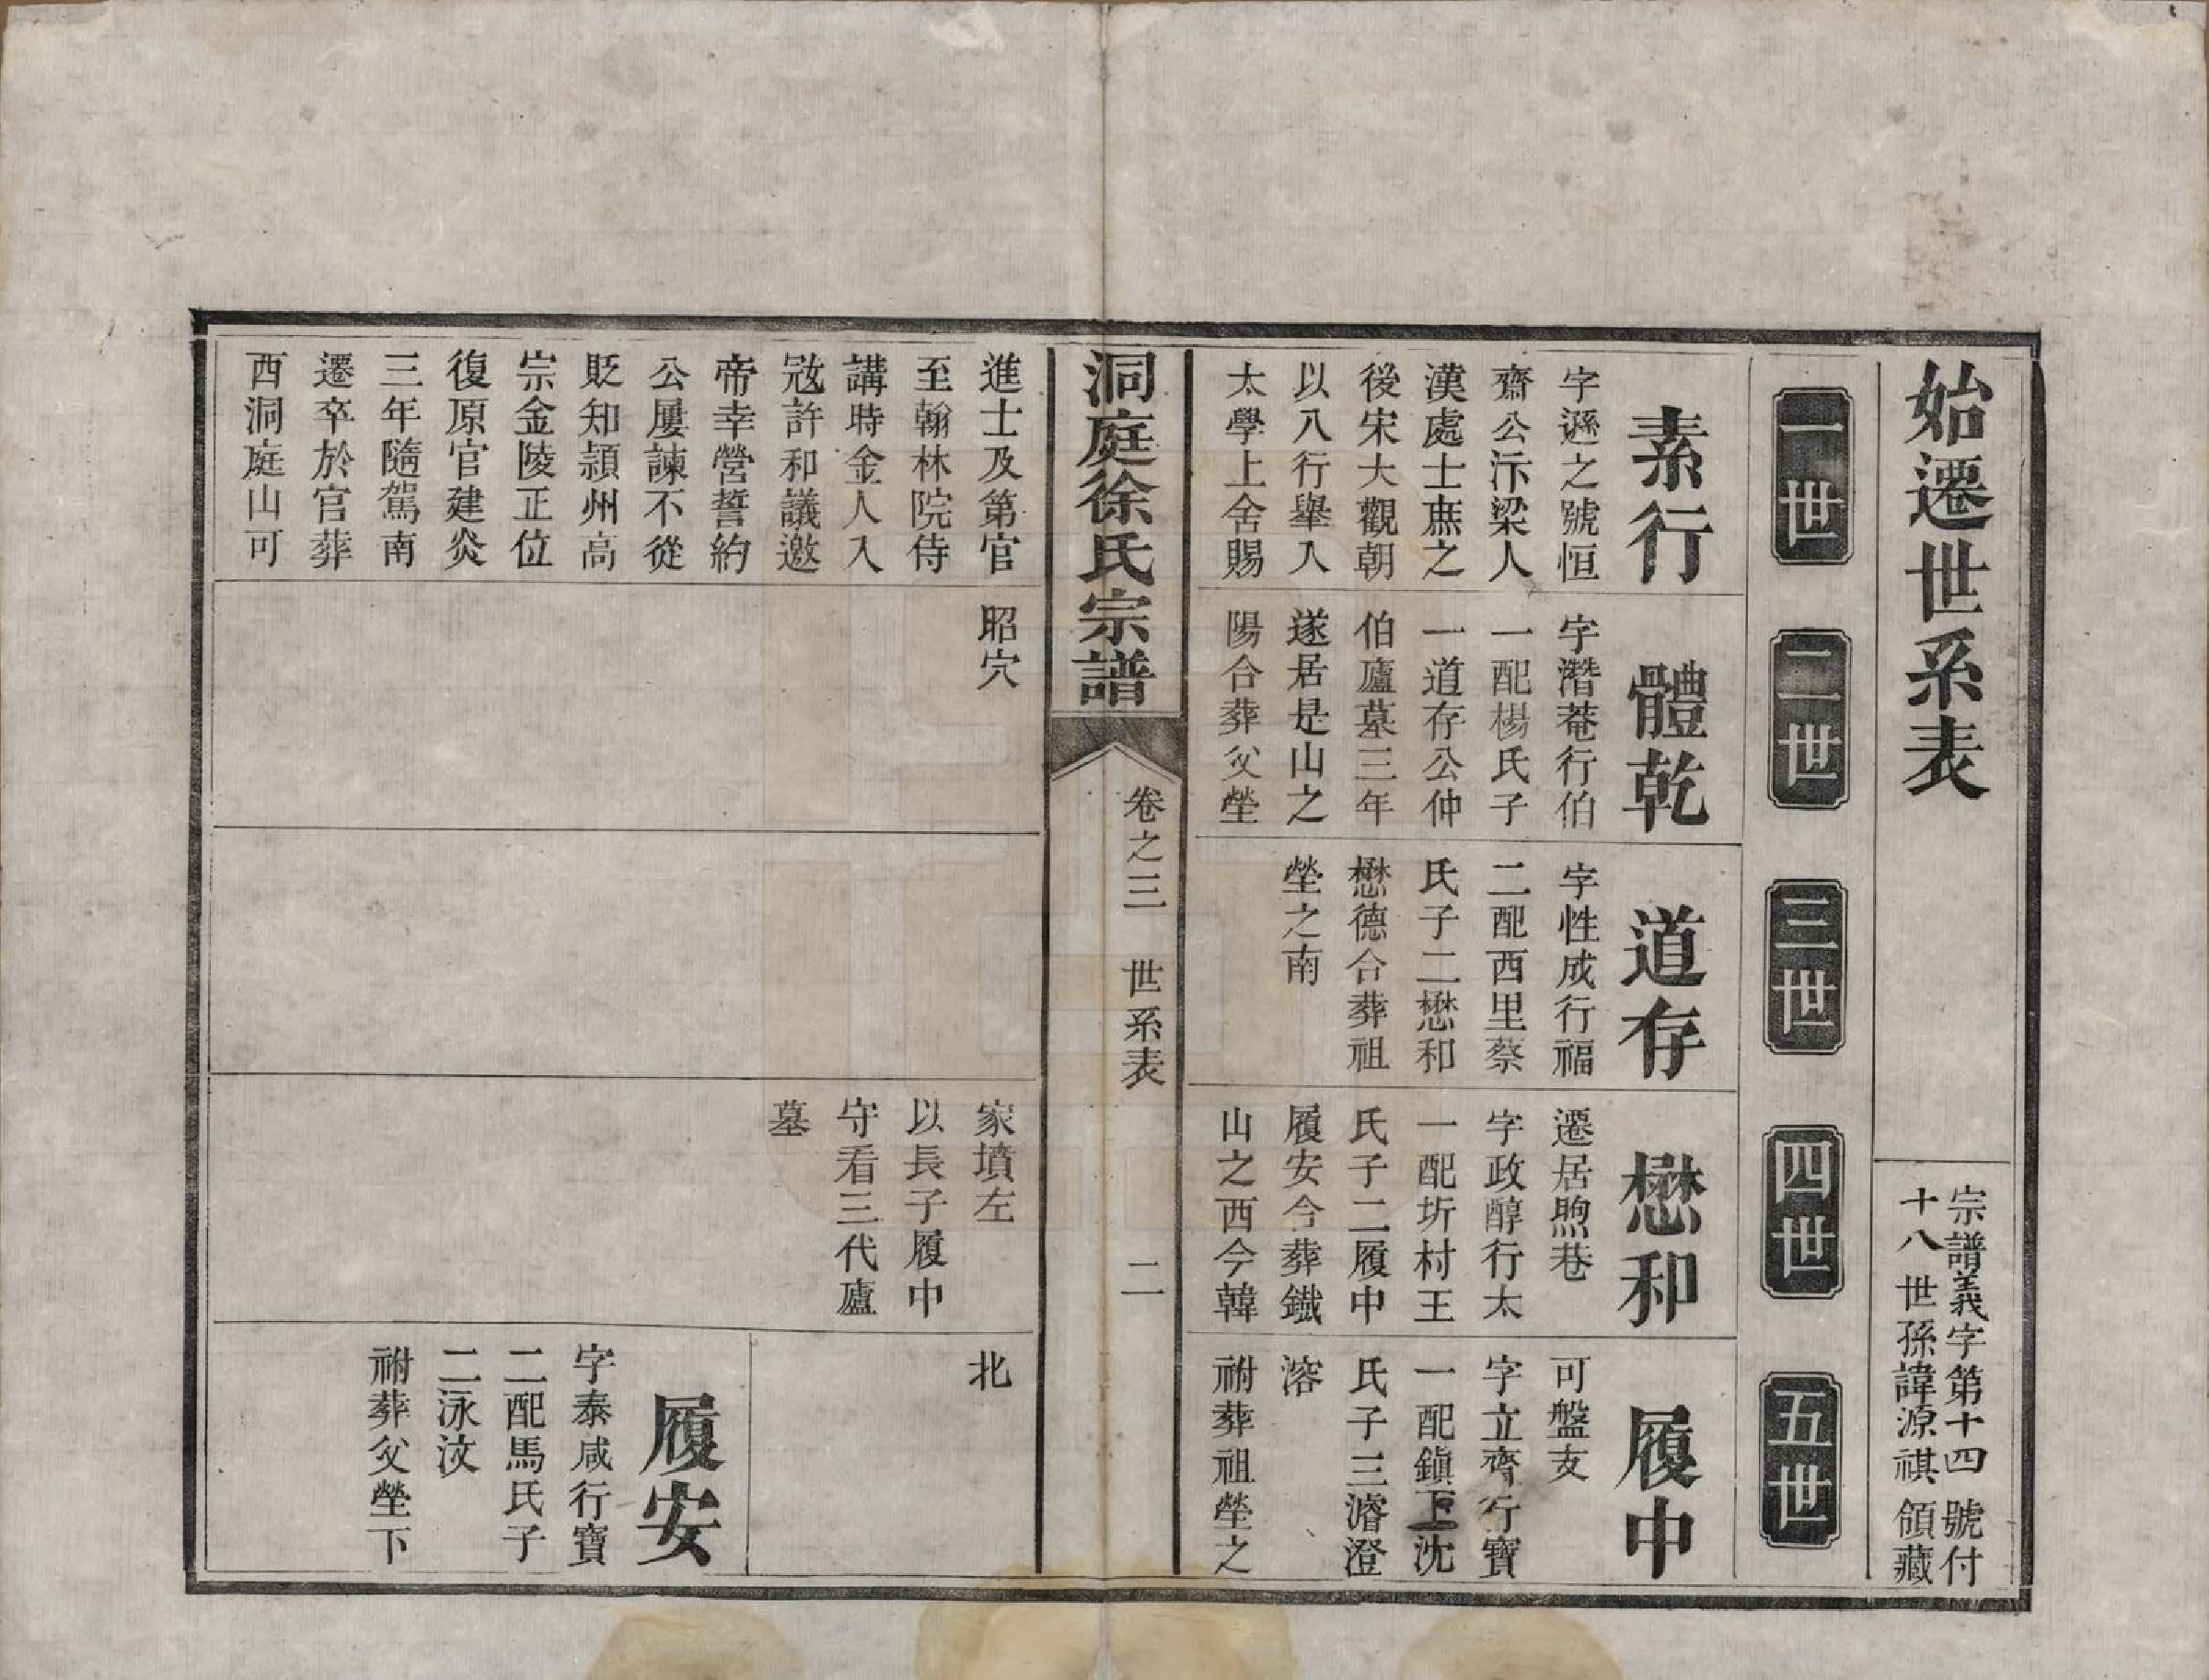 始遷世系表
宗譜義字第十四號付
十八世孫諱源祺領藏
一世
二世
三世
四世
五世
素行
字遜之號恒
齋公汴梁人
漢處士庶之
後宋大觀朝
以八行舉入
太學上舍賜
體乾
字潛菴行伯
一配楊氏子
一道存公仲
伯廬墓三年
遂居是山之
陽合葬父塋
道存
字性成行福
二配西里蔡
氏子二懋和
懋德合葬祖
塋之南
懋和
遷居煦巷
字政醇行太
一配圻村王
氏子二履中
履安合葬鐵
山之西今韓
履中
可盤支
字立齊行寶
一配鎮下沈
氏子三濬澄
溶
祔葬祖塋之
洞庭徐氏宗譜
卷之三 世系表
二
進士及第官
至翰林院侍
講時金人入
寇許和議邀
帝幸營誓約
公屢諫不從
貶知潁州高
宗金陵正位
復原官建炎
三年隨駕南
遷卒於官葬
西洞庭山可
昭穴
家墳左
以長子履中
守看三代廬
墓
北
履安
字泰咸行寶
二配馬氏子
二泳汶
祔葬父塋下